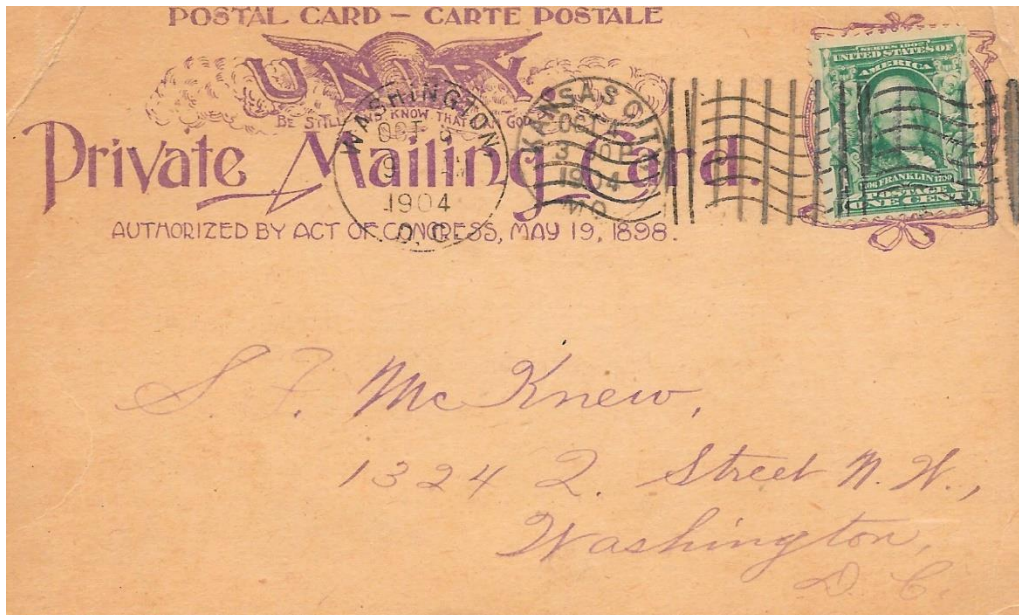 POSTAL CARD – CARTE POSTALE
UNITY
BE STILL AND KNOW THAT I GOD
Private Mailing Card.
AUTHORIZED BY ACT OF CONGRESS, MAY 19, 1898.
WASHINGTON
OCT 6
9
1904
D.C.
KANSAS CITY
OCT 4
3
1904
MO
SERIES 1902
UNITED STATES OF
AMERICA
1706 FRANKLIN 1790
POSTAGE
ONE CENT
S. F. McKnew,
1324 Q. Street N. W.,
Washington,
D. C.